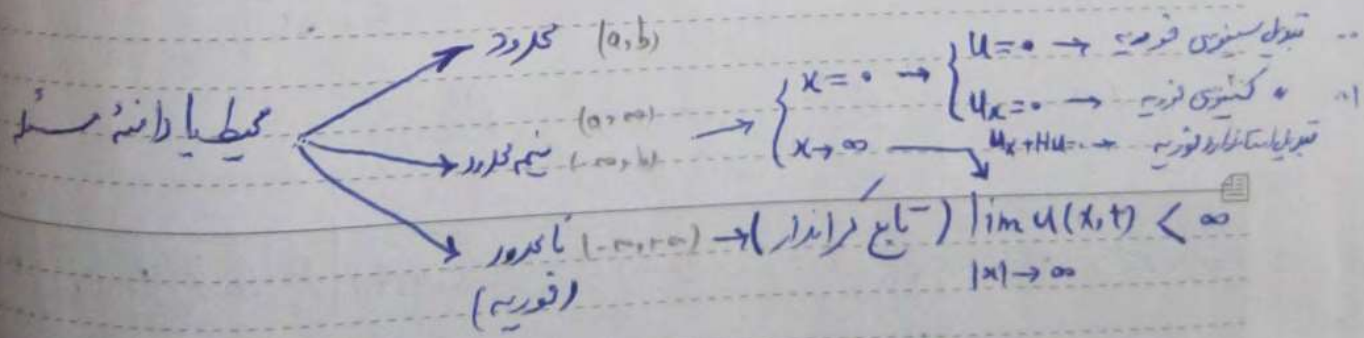 محیط یا دامنهٔ مسئله
محدود (a,b)
نیمه محدود (a,∞) (-∞,b)
x=0 → u=0 → تبدیل سینوسی فوریه
ux=0 → " کسینوسی فوریه
ux+Hu=0 → تبدیل استاندارد فوریه
x→∞
نامحدود (-∞,+∞) → (تابع کراندار) lim u(x,t) < ∞
|x|→∞
(فوریه)